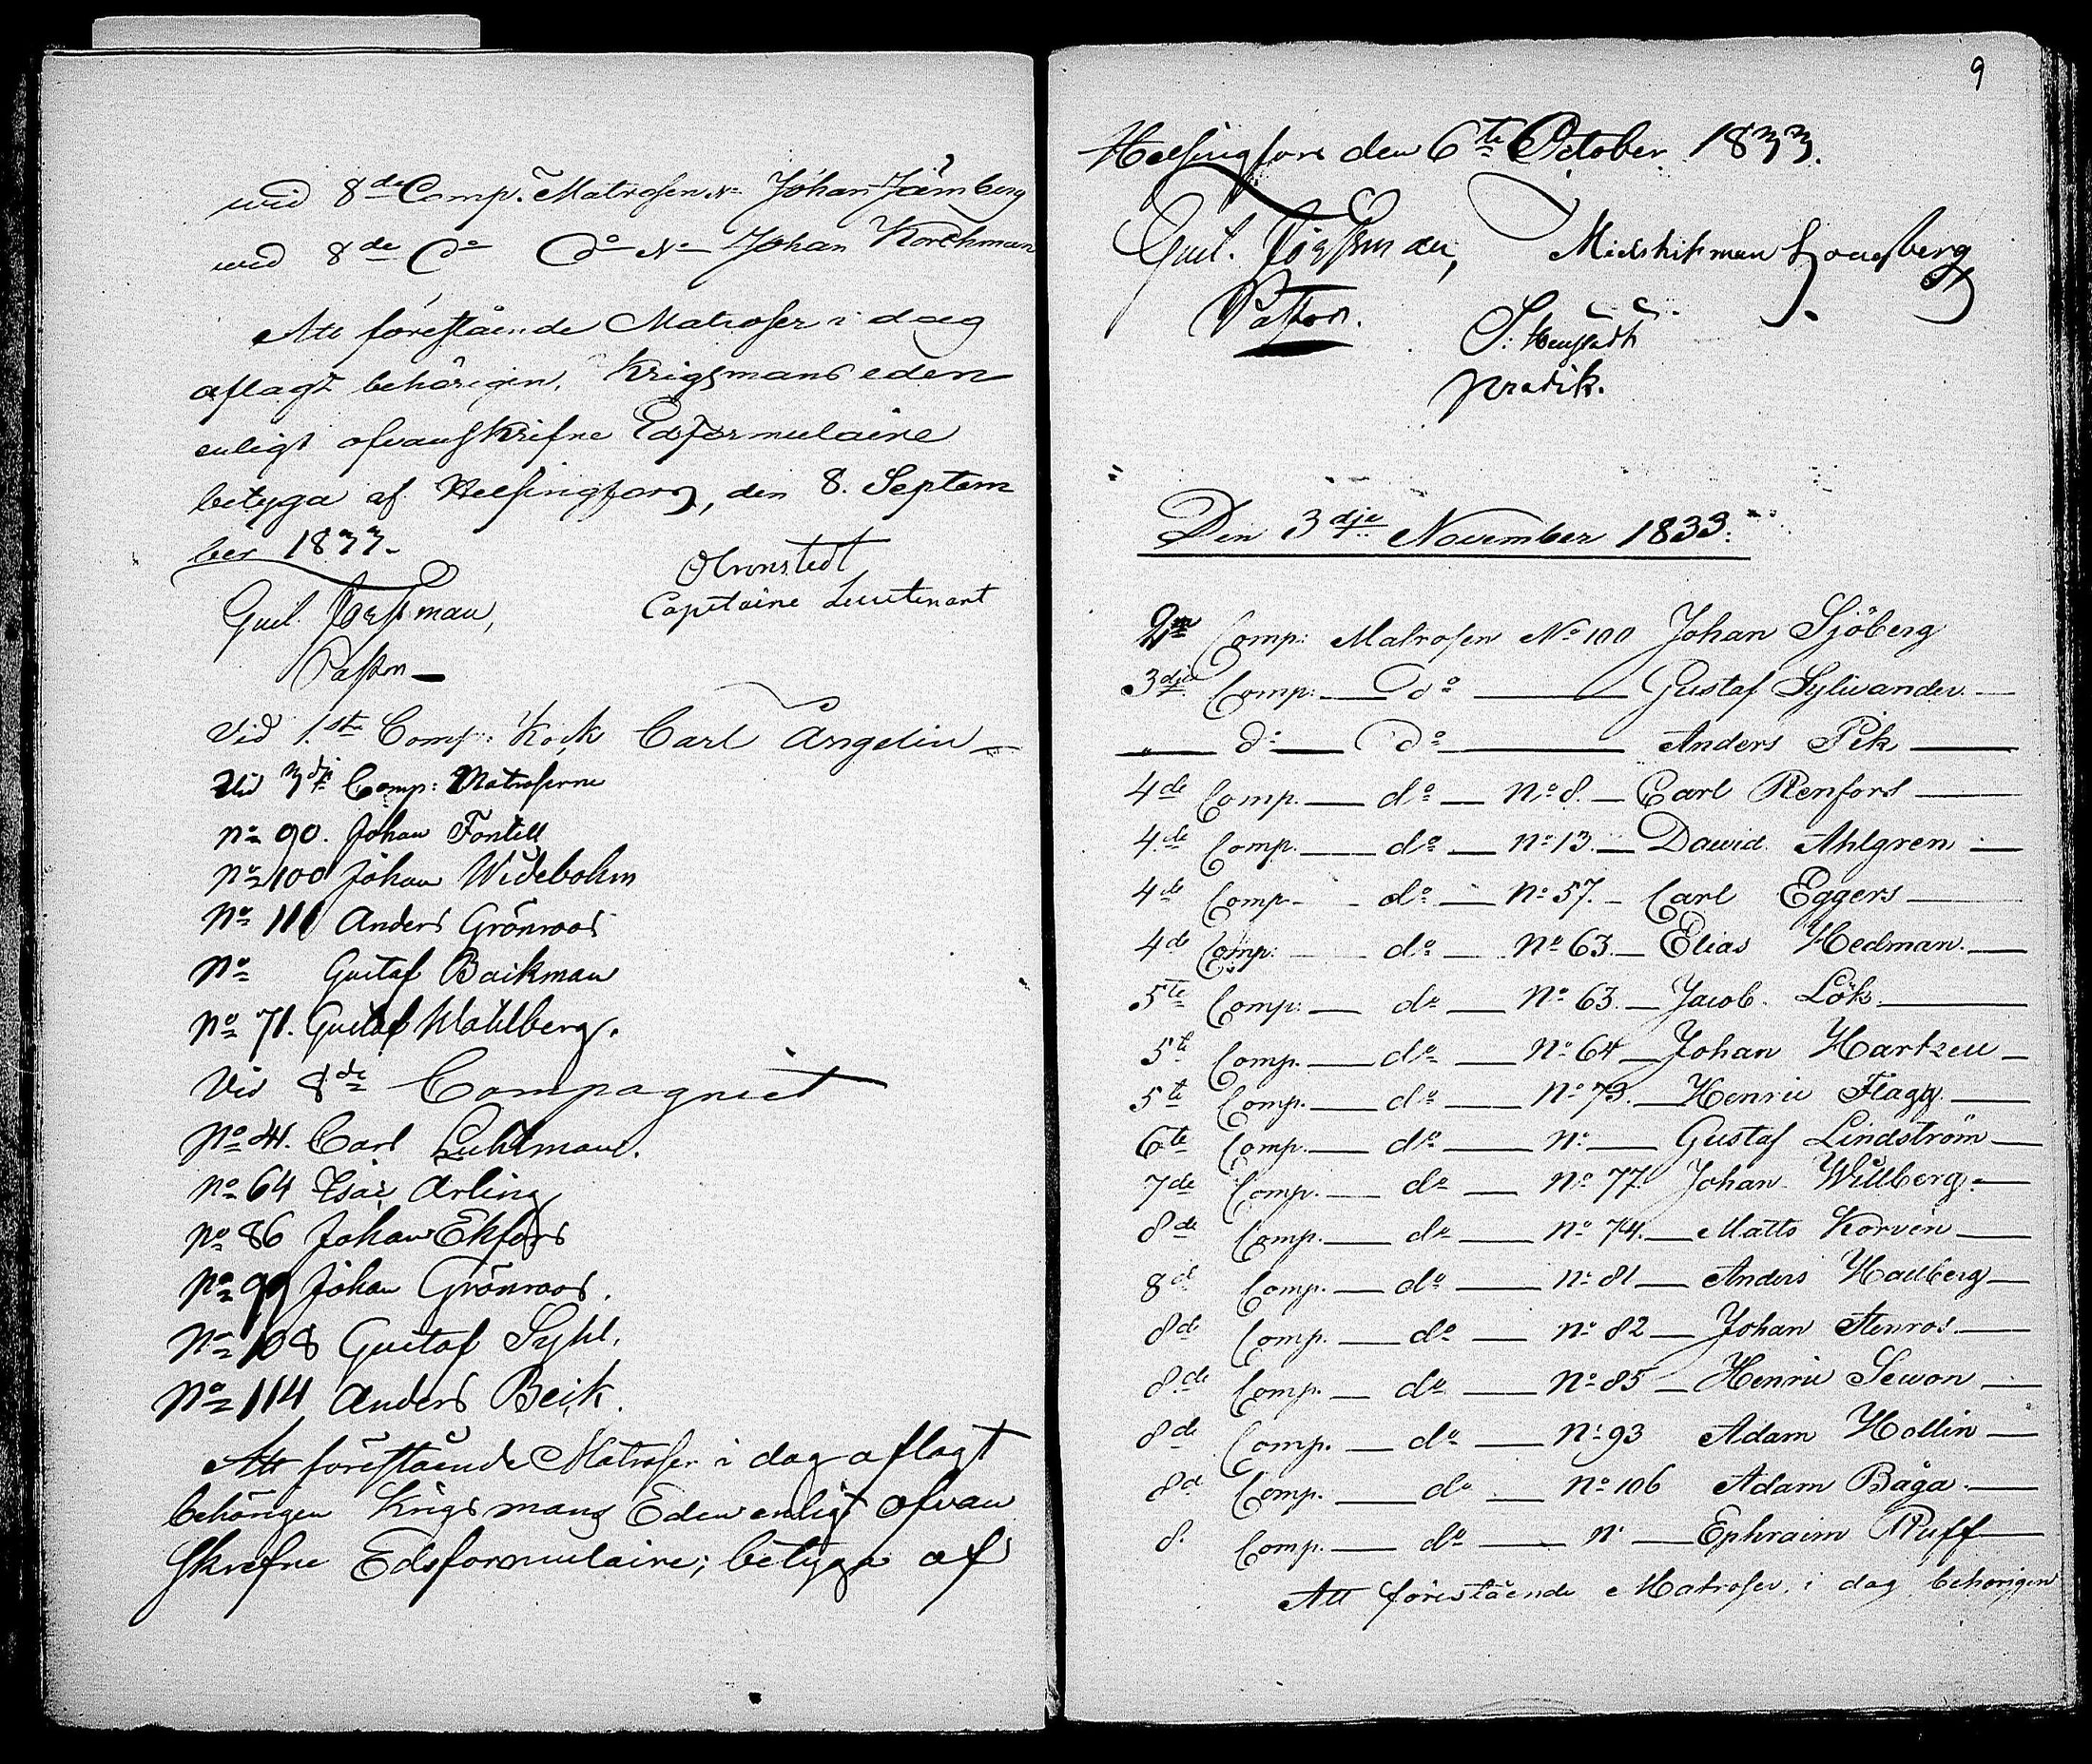 wid 8de Comp. Matrosen No Johan Jernberg
wid 8de Do Do No Johan Korchman
Att förestående Matroser i dag
aflagt behörigen Krigsmans eden
enligt ofvanskrifne Edsformulaire
betyga af Helsingfors, den 8. Septem
ber 1833.
Cronstedt
Capitaine Lieutenant
Guil.
Pastor
Vid 1sta Comp: Kock Carl Ångelin
Vid 3dje Comp: Matroserne
No 90. Johan Fontell
No 100 Johan Widebohm
No 111 Anders Grönroos
No Gustaf Backman
No 71. Gustaf Wahlberg.
Vid 8de Compagniet
No 41. Carl Luhtman.
No 64 Esai Arling
No 86 Johan Ekfors
No 99 Johan Grönroos.
No 108 Gustaf Syhl.
No 114 Anders Beck.
Att förestående Matroser i dag aflagt
behörigen Krigsmans Eden enligt ofvan
skrefne Edsformulaire; betyga af
9
Helsingfors den 6te October 1833.
Guil. Midshipman
Pastor.
Den 3dje November 1833.
2ra Comp: Matrosen No 100 Johan Sjöberg
3dje Comp: Do Gustaf Sylwander
" do Do Anders Pik
4de Comp. do No 8. Carl Renfors
4de Comp. do No 13. Dawid Ahlgren
4de Comp. do No 57. Carl Eggers
4de Comp: do No 63. Elias Hedman.
5te Comp: do No 63. Jacob Lök.
5te Comp. do No 64 Johan Hartzell
5te Comp. do No 73. Henric Flagg.
6te Comp. do No Gustaf Lindström
7de Comp. do No 77. Johan Willberg.
8de Comp. do No 74. Matts Korvén
8de Comp. do No 81 Anders Hallberg
8de Comp. do No 82 Johan Stenros.
8de Comp. do No 85 Henric Sewon
8de Comp. do No 93 Adam Hollin
8de Comp. do No 106 Adam Båga.
8. Comp. do No Ephraim Ruff
Att förestående Matroser i dag behörigen